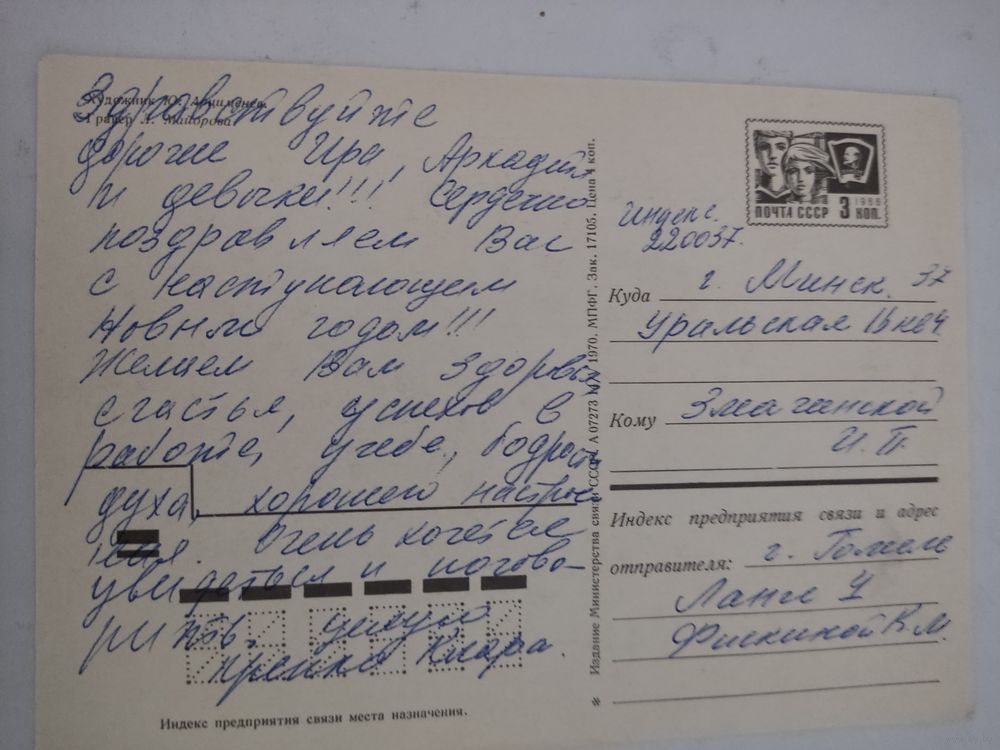 Художник Ю.
Гравер Л. Майорова
Здравствуйте
дорогие Ира, Аркадий
и девочки!!! Сердечно
поздравляем Вас
с наступающим
Новым годом!!!
Желаем Вам здоровья
счастья, успехов в
работе, учебе, бодрости
духа, хорошего настрое
ния. Очень хочется
увидеться и погово-
рить. Целую
крепко Клара.
Индекс предприятия связи места назначения.
Издание Министерства связи СССР. А 07273 1970. МПФГ. Зак. 17105. Цена 4 коп.
ПОЧТА СССР 3 КОП.
1966
Индекс.
220037.
Куда г. Минск. 37
Уральская
Кому Змачинской
И. П.
Индекс предприятия связи и адрес
отправителя: г. Гомель
Ланге
Фискиной К. М